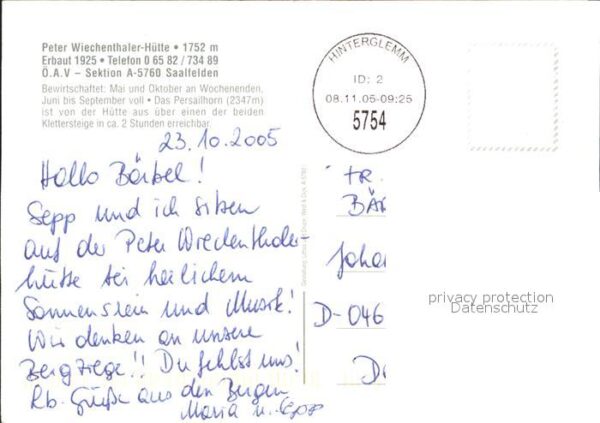 Peter Wiechenthaler-Hütte • 1752 m
Erbaut 1925 • Telefon 0 65 82 / 734 89
Ö.A.V – Sektion A-5760 Saalfelden
Bewirtschaftet: Mai und Oktober an Wochenenden,
Juni bis September voll • Das Persailhorn (2347m)
ist von der Hütte aus über einen der beiden
Klettersteige in ca. 2 Stunden erreichbar.
HINTERGLEMM
ID: 2
08.11.05-09:25
5754
23.10.2005
Hallo Bärbel!
Sepp und ich sitzen
auf der Peter Wiechenthaler-
hütte bei herlichem
Sonnenschein und Musik!
Wir denken an unsere
Bergziege!! Du fehlst uns!
Lb. Grüße aus den Bergen
Maria u. Sepp
FR.
BÄR
Joha
D-046
privacy protection
Datenschutz